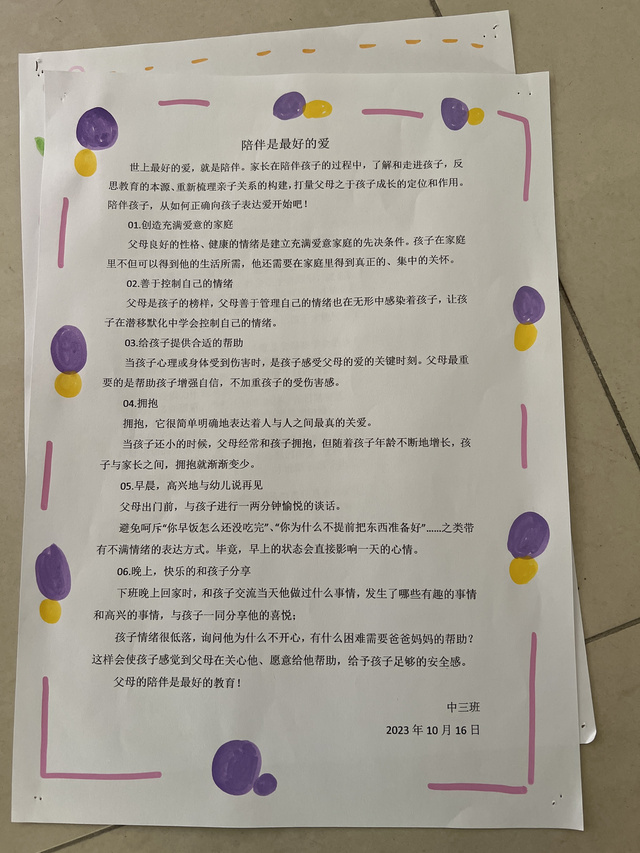 陪伴是最好的爱
世上最好的爱，就是陪伴。家长在陪伴孩子的过程中，了解和走进孩子，反
思教育的本源、重新梳理亲子关系的构建，打量父母之于孩子成长的定位和作用。
陪伴孩子，从如何正确向孩子表达爱开始吧！
01.创造充满爱意的家庭
父母良好的性格、健康的情绪是建立充满爱意家庭的先决条件。孩子在家庭
里不但可以得到他的生活所需，他还需要在家庭里得到真正的、集中的关怀。
02.善于控制自己的情绪
父母是孩子的榜样，父母善于管理自己的情绪也在无形中感染着孩子，让孩
子在潜移默化中学会控制自己的情绪。
03.给孩子提供合适的帮助
当孩子心理或身体受到伤害时，是孩子感受父母的爱的关键时刻。父母最重
要的是帮助孩子增强自信，不加重孩子的受伤害感。
04.拥抱
拥抱，它很简单明确地表达着人与人之间最真的关爱。
当孩子还小的时候，父母经常和孩子拥抱，但随着孩子年龄不断地增长，孩
子与家长之间，拥抱就渐渐变少。
05.早晨，高兴地与幼儿说再见
父母出门前，与孩子进行一两分钟愉悦的谈话。
避免呵斥“你早饭怎么还没吃完”、“你为什么不提前把东西准备好”……之类带
有不满情绪的表达方式。毕竟，早上的状态会直接影响一天的心情。
06.晚上，快乐的和孩子分享
下班晚上回家时，和孩子交流当天他做过什么事情，发生了哪些有趣的事情
和高兴的事情，与孩子一同分享他的喜悦；
孩子情绪很低落，询问他为什么不开心，有什么困难需要爸爸妈妈的帮助？
这样会使孩子感觉到父母在关心他、愿意给他帮助，给予孩子足够的安全感。
父母的陪伴是最好的教育！
中三班
2023 年 10 月 16 日